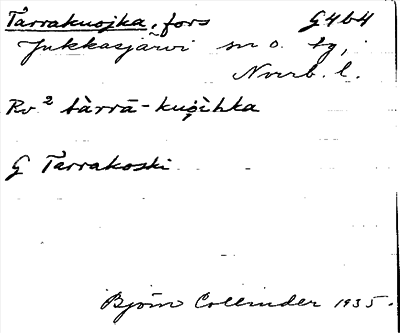 Tårrakuojka, fors G4b4
Jukkasjärvi sn o. tg,
Norrb. l.
Rv² tàrrā-kuo̩ìhka
G Tarrakoski
Björn Collinder 1935.